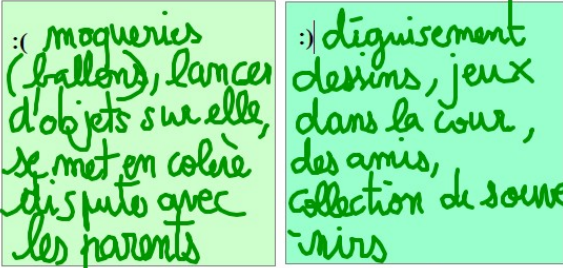 :( moqueries
(ballons), lancer
d'objets sur elle,
se met en colère
dispute avec
les parents
:) déguisement
dessins, jeux
dans la cour,
des amis,
collection de souve
-nirs